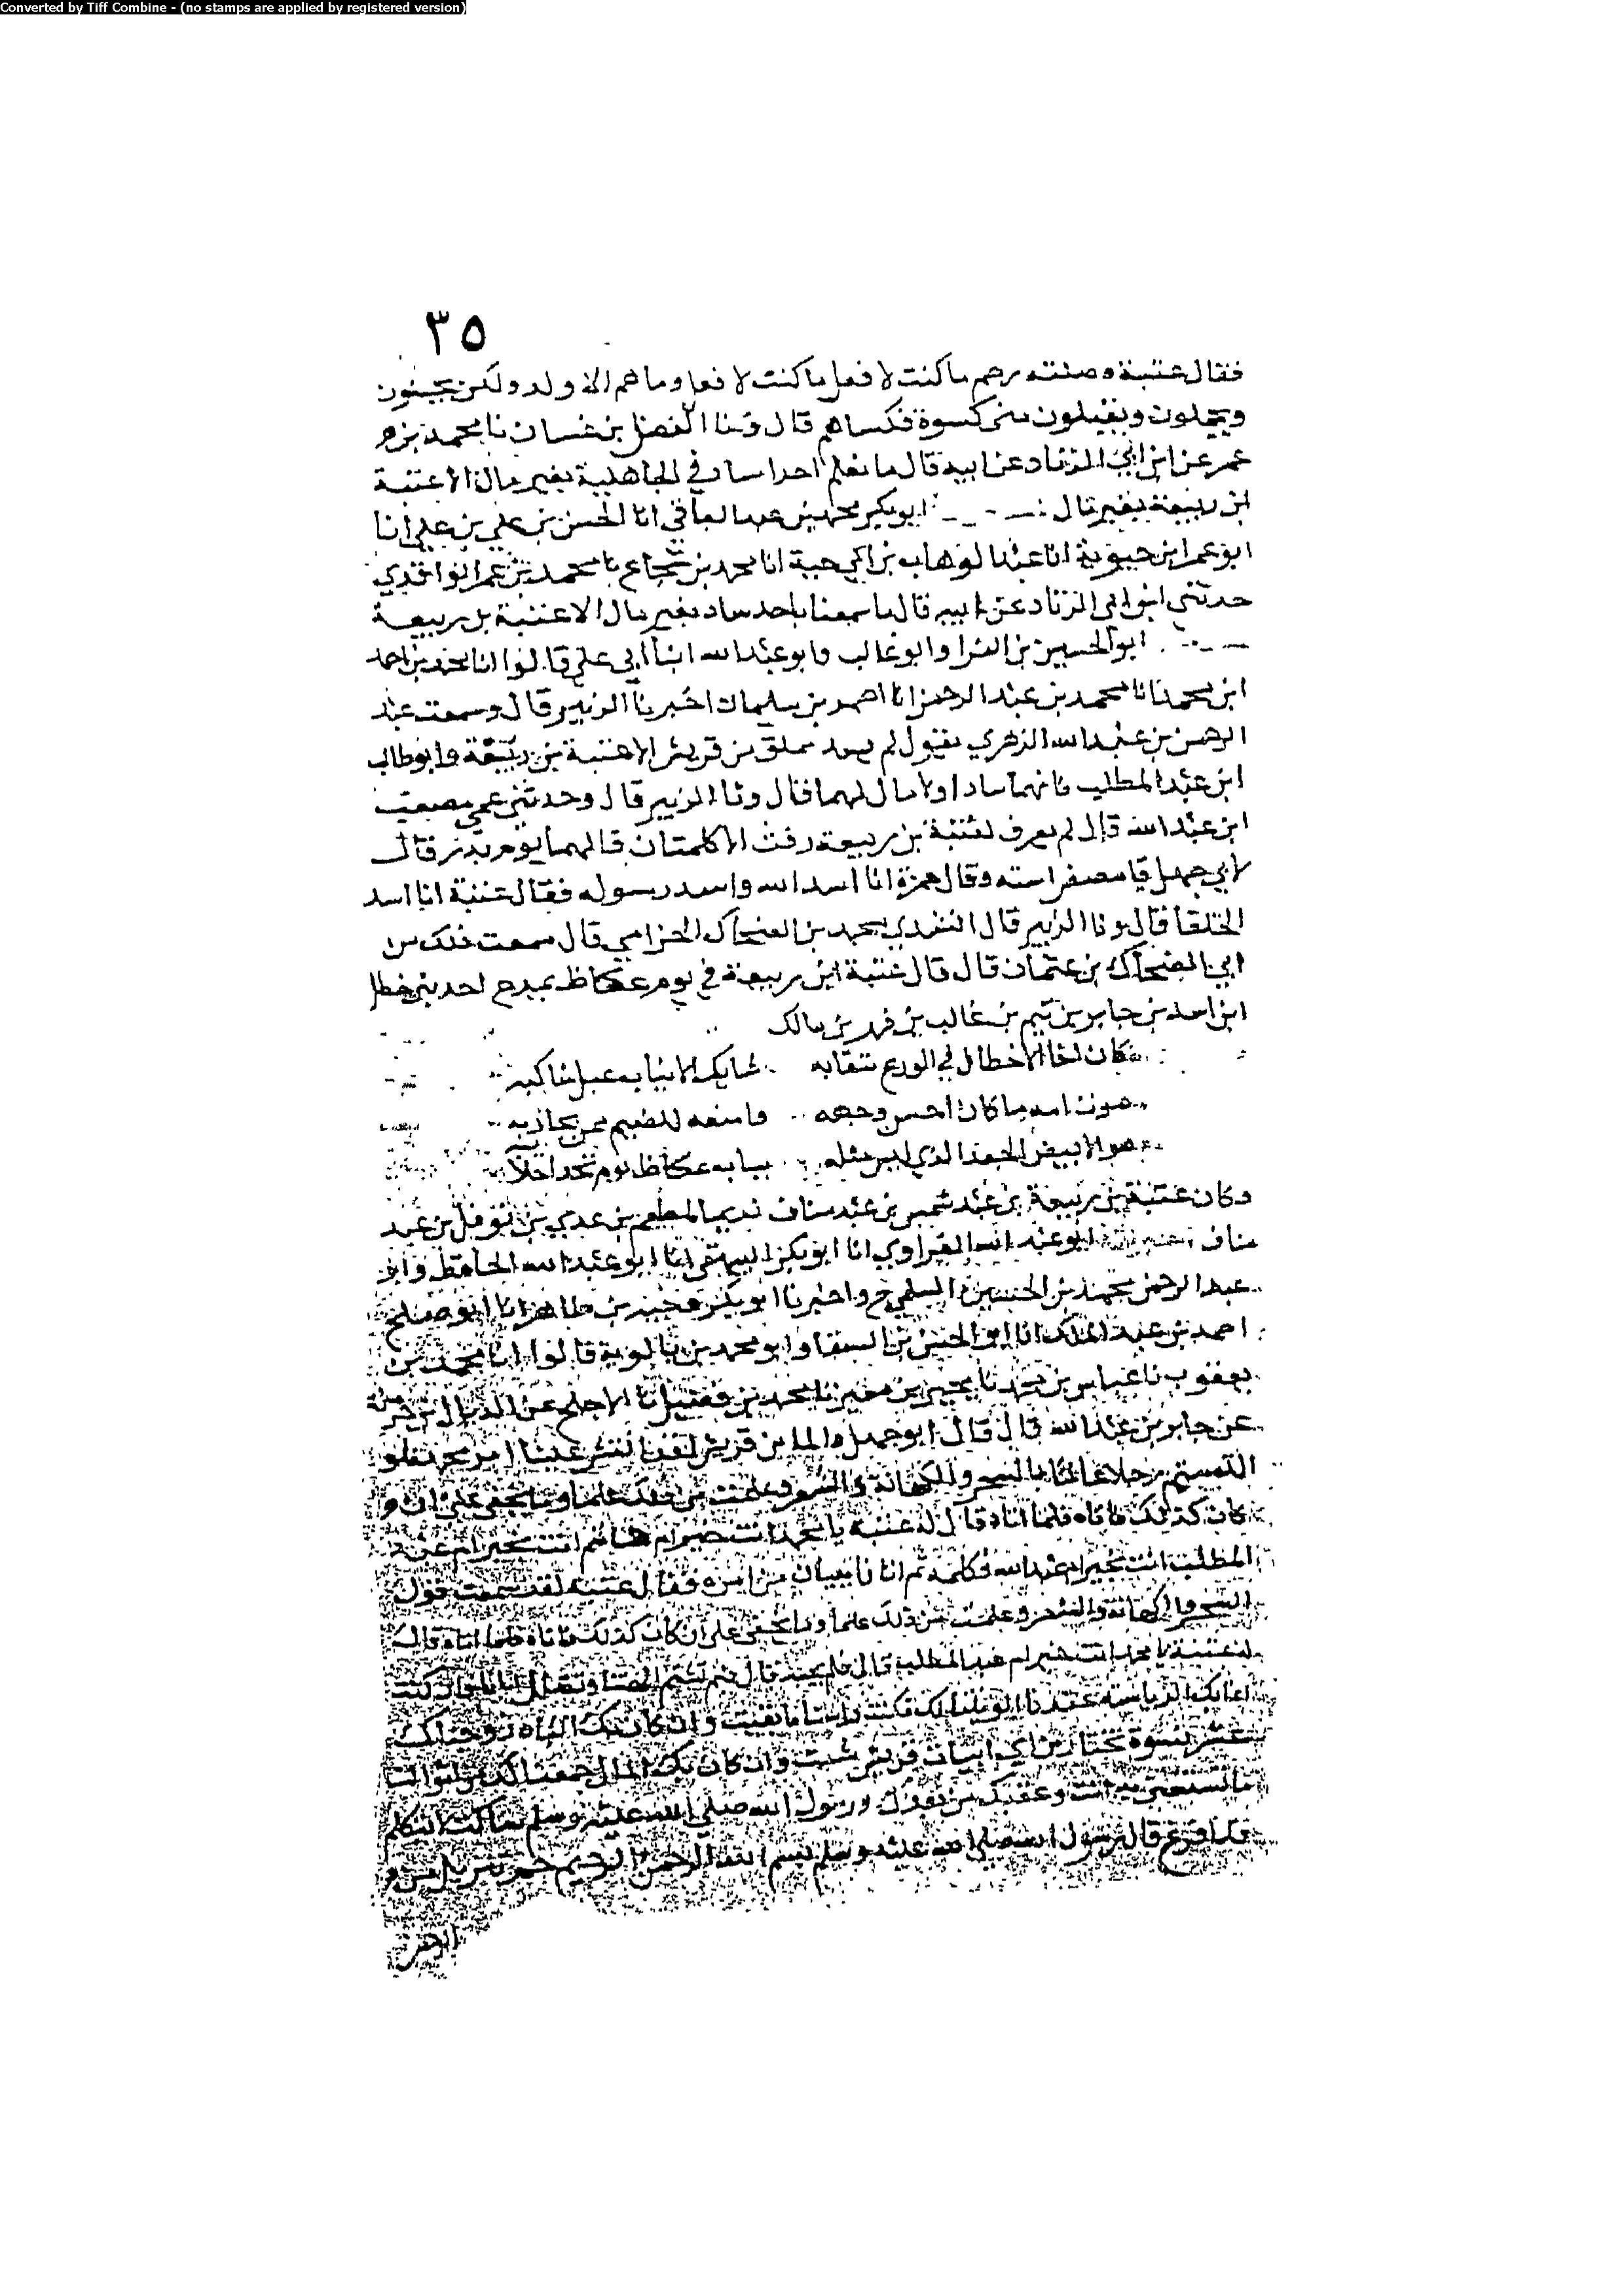 Converted by Tiff Combine - (no stamps are applied by registered version)
٣٥
فقال عتبة وصلته رحم ما كنت لافعل ما كنت لافعل وما هم الا ولد ولكن يجبنون
ويبخلون ويقبلون مني كسوة فكساهم قال ونا الفضل بن غسان نا محمد بن
عمر عن ابن ابي الزناد عن ابيه قال ما نعلم احدا ساد في الجاهلية بغير مال الا عتبة
ابن ربيعة بغير مال ابو بكر محمد بن عبد الباقي انا الحسن بن علي بن علي انا
ابو عمر ابن حيوية انا عبد الوهاب بن ابي حية انا محمد بن شجاع نا محمد بن عمر الواقدي
حدثني ابن ابي الزناد عن ابيه قال ما سمعنا باحد ساد بغير مال الا عتبة بن ربيعة
ابو الحسين بن الفرا وابو غالب وابو عبد الله ابنا ابي علي قالوا انا محمد بن احمد
ابن محمد انا محمد بن عبد الرحمن انا احمد بن سليمان اخبرنا الزبير قال وسمعت عبد
الرحمن بن عبد الله الزهري يقول لم يسد مملق من قريش الا عتبة بن ربيعة وابو طالب
ابن عبد المطلب فانهما سادا ولا مال لهما قال ونا الزبير قال وحدثني عمي مصعب
ابن عبد الله قال لم يعرف لعتبة بن ربيعة رفث الا كلمتان قالهما يوم بدر قال
لابي جهل يا مصفر استه وقال حمزة انا اسد الله واسد رسوله فقال عتبة انا اسد
الحلفا قال ونا الزبير قال انشدني محمد بن الضحاك الحزامي قال سمعت ذلك من
ابي الضحاك بن عثمان قال قال عتبة ابن ربيعة في يوم عكاظ يمدح احد بني خطل
ابن اسد بن جابر بن تيم بن غالب بن فهر بن مالك
كان اخا الاخطال في الورع شابك الانياب عبل مناكبه
امه ما كان احسن وجهه وامنعه للضيم ممن يجاذبه
هو الابيض الجعد الذي ليس مثله عكاظ يوم
وكان عتبة بن ربيعة بن عبد شمس بن عبد مناف نديما لمطعم بن عدي بن نوفل بن عبد
مناف ابو عبد الله الفراوي انا ابو بكر البيهقي انا ابو عبد الله الحافظ وابو
عبد الرحمن محمد بن الحسين السلمي ح واخبرنا ابو بكر وجيه بن طاهر انا ابو صالح
احمد بن عبد الملك انا ابو الحسن بن السقا وابو محمد بن بالوية قالوا انا محمد بن
يعقوب نا عباس بن محمد نا يحيى بن معين نا محمد بن فضيل نا الاجلح عن الذيال بن حرملة
عن جابر بن عبد الله قال قال ابو جهل والملا من قريش لقد انتشر علينا امر محمد فلو
التمستم رجلا عالما بالسحر والكهانة والشعر وعلمت من ذلك علما وما يخفى علي ان
كان كذلك فاتاه فلما اتاه قال له عتبة يا محمد انت خير ام هاشم انت خير ام عبد
المطلب انت خير ام عبد الله فكلمه ثم اتانا ببيان من امره فقال عتبة لقد سمعت قول
السحر والكهانة والشعر وعلمت من ذلك علما وما يخفى علي ان كان كذلك فاتاه فلما اتاه قال
له عتبة يا محمد انت خير ام عبد المطلب قال فلم يجبه قال فبم تشتم الهتنا وتضلل ابانا فان كنت
انما بك الرياسة عقدنا الويتنا لك فكنت راسا ما بقيت وان كان بك الباه زوجناك
عشر نسوة تختار من اي ابيات قريش شيت وان كان بك المال جمعنا لك من اموالنا
ما تستغني به انت وعقبك من بعدك ورسول الله صلى الله عليه وسلم ساكت لا يتكلم
فلما فرغ قال رسول الله صلى الله عليه وسلم بسم الله الرحمن الرحيم حم تنزيل من
الرحمن